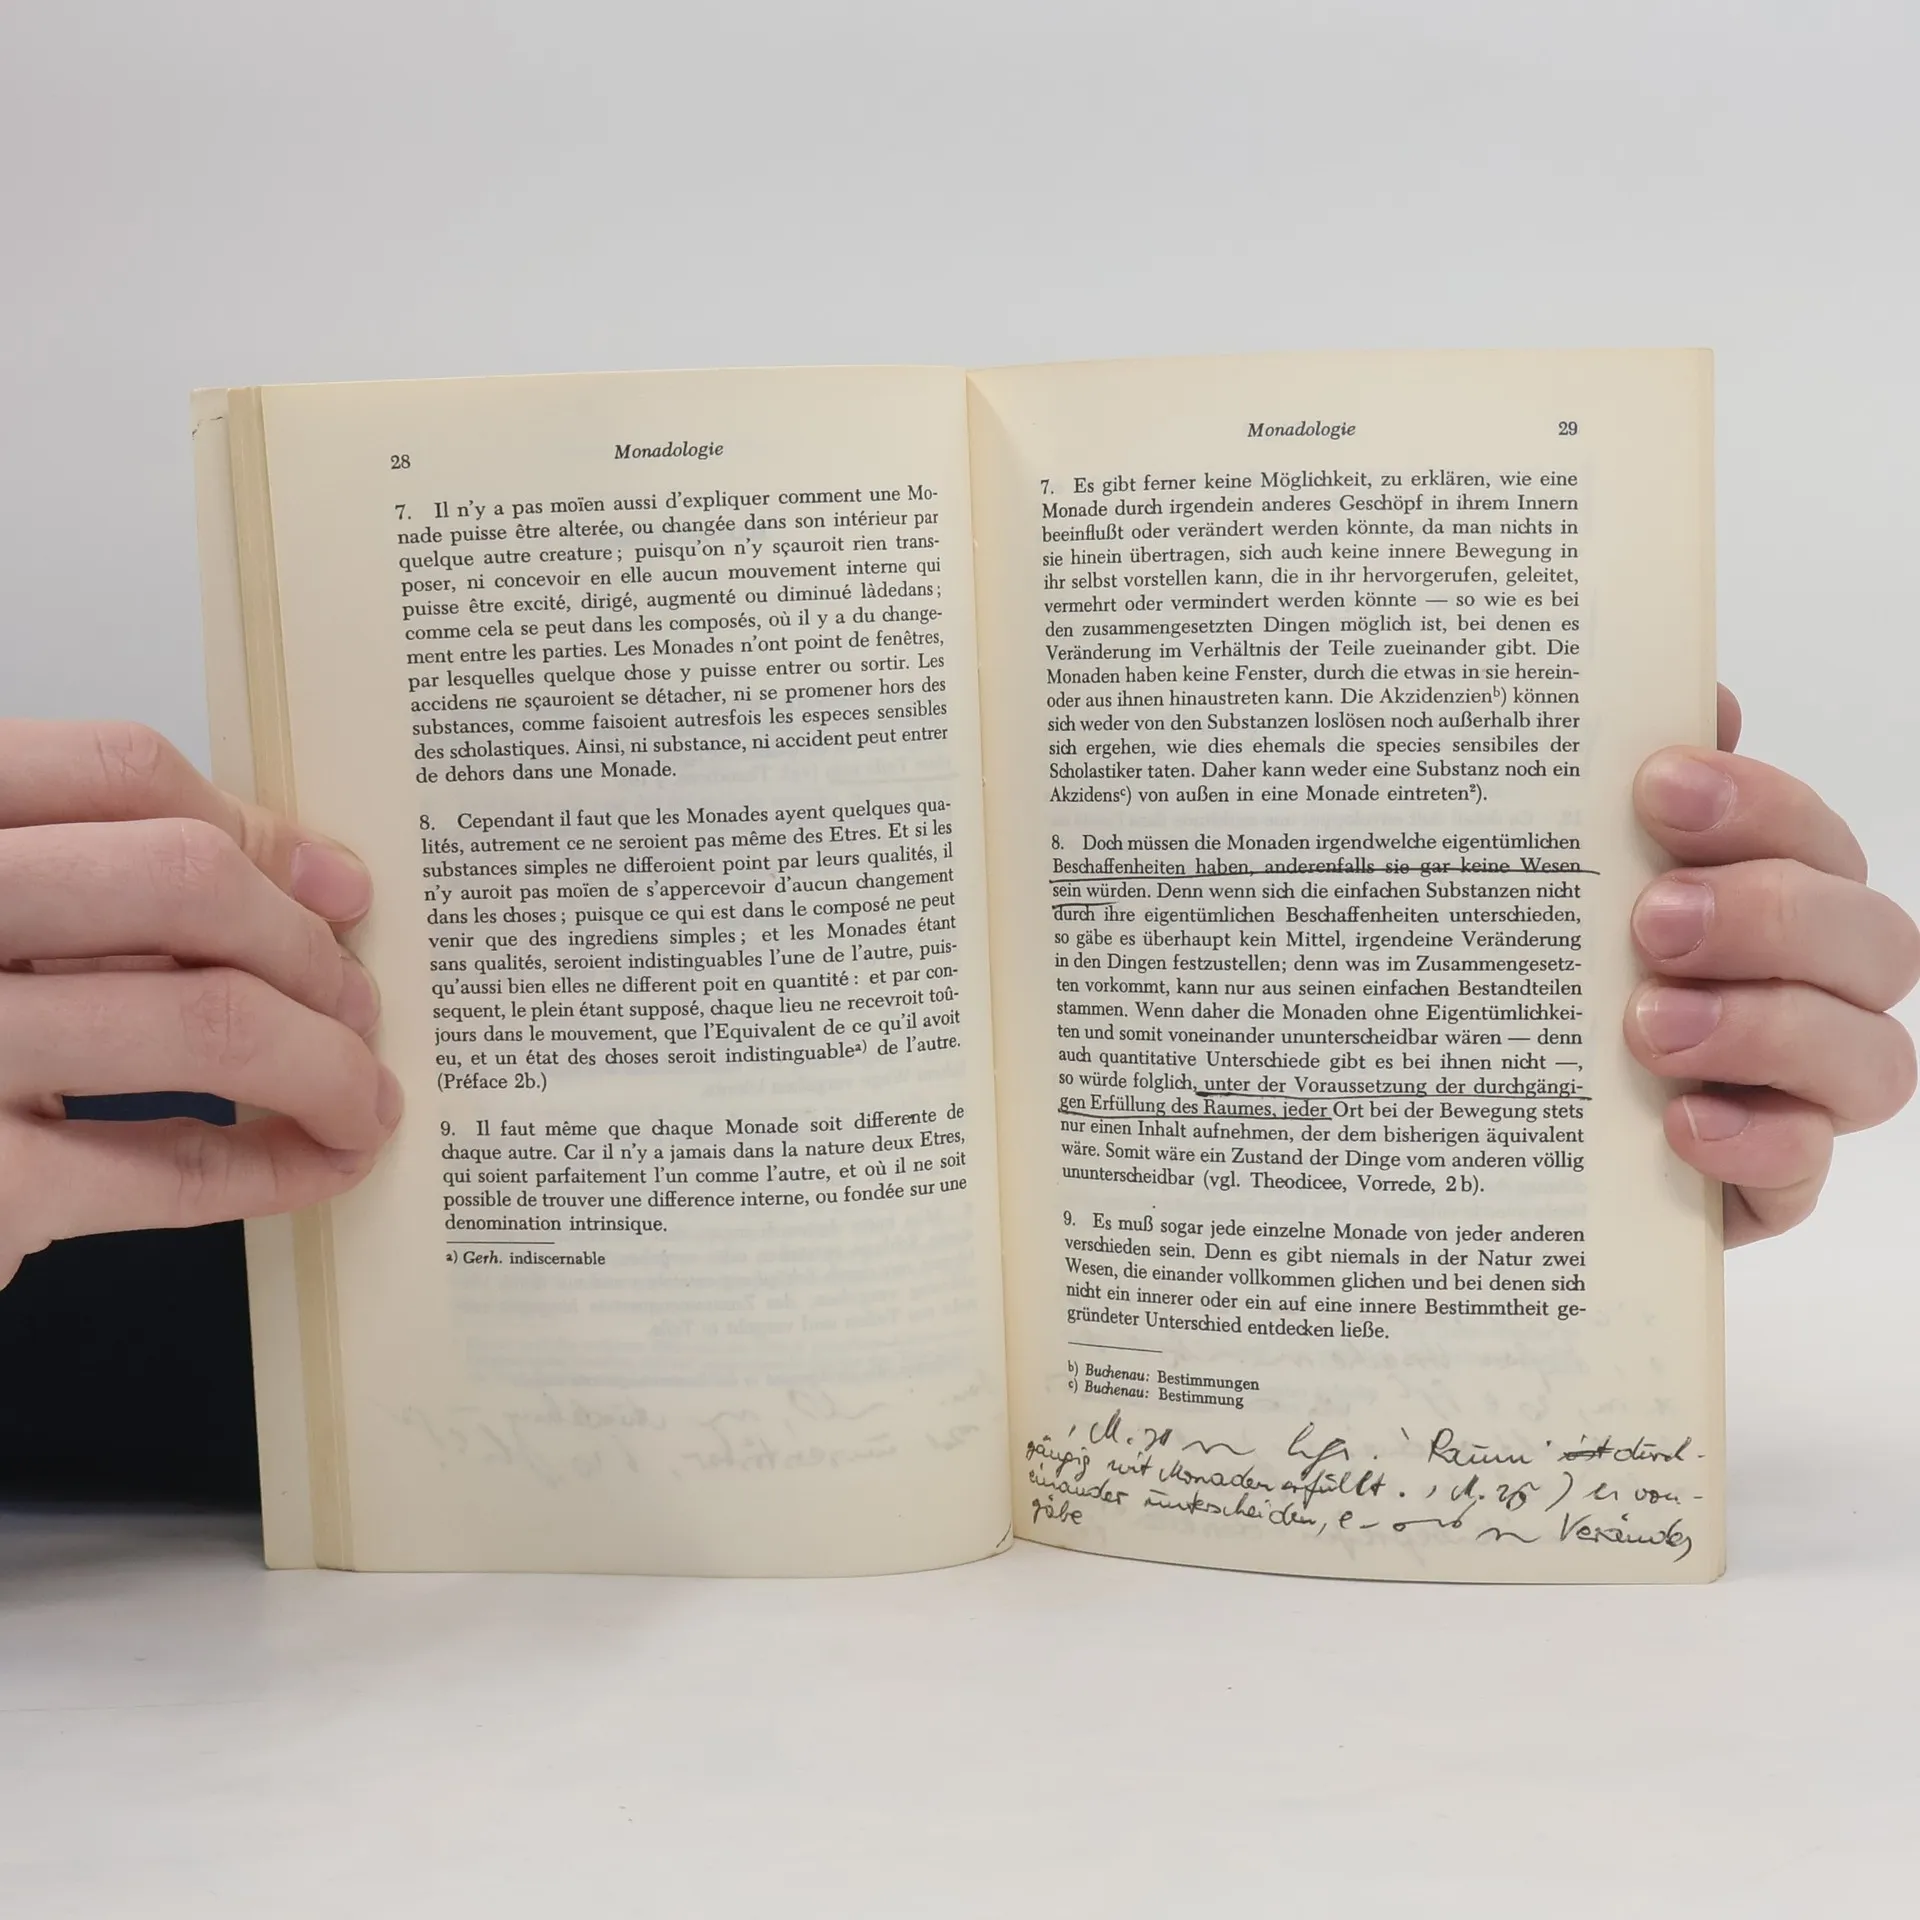 28
Monadologie
7. Il n'y a pas moïen aussi d'expliquer comment une Mo-
nade puisse être alterée, ou changée dans son intérieur par
quelque autre creature; puisqu'on n'y sçauroit rien trans-
poser, ni concevoir en elle aucun mouvement interne qui
puisse être excité, dirigé, augmenté ou diminué làdedans;
comme cela se peut dans les composés, où il y a du change-
ment entre les parties. Les Monades n'ont point de fenêtres,
par lesquelles quelque chose y puisse entrer ou sortir. Les
accidens ne sçauroient se détacher, ni se promener hors des
substances, comme faisoient autresfois les especes sensibles
des scholastiques. Ainsi, ni substance, ni accident peut entrer
de dehors dans une Monade.
8. Cependant il faut que les Monades ayent quelques qua-
lités, autrement ce ne seroient pas même des Etres. Et si les
substances simples ne differoient point par leurs qualités, il
n'y auroit pas moïen de s'appercevoir d'aucun changement
dans les choses; puisque ce qui est dans le composé ne peut
venir que des ingrediens simples; et les Monades étant
sans qualités, seroient indistinguables l'une de l'autre, puis-
qu'aussi bien elles ne different poit en quantité: et par con-
sequent, le plein étant supposé, chaque lieu ne recevroit toû-
jours dans le mouvement, que l'Equivalent de ce qu'il avoit
eu, et un état des choses seroit indistinguable a) de l'autre.
(Préface 2b.)
9. Il faut même que chaque Monade soit differente de
chaque autre. Car il n'y a jamais dans la nature deux Etres,
qui soient parfaitement l'un comme l'autre, et où il ne soit
possible de trouver une difference interne, ou fondée sur une
denomination intrinsique.
a) Gerh. indiscernable
Monadologie
29
7. Es gibt ferner keine Möglichkeit, zu erklären, wie eine
Monade durch irgendein anderes Geschöpf in ihrem Innern
beeinflußt oder verändert werden könnte, da man nichts in
sie hinein übertragen, sich auch keine innere Bewegung in
ihr selbst vorstellen kann, die in ihr hervorgerufen, geleitet,
vermehrt oder vermindert werden könnte — so wie es bei
den zusammengesetzten Dingen möglich ist, bei denen es
Veränderung im Verhältnis der Teile zueinander gibt. Die
Monaden haben keine Fenster, durch die etwas in sie herein-
oder aus ihnen hinaustreten kann. Die Akzidenzien b) können
sich weder von den Substanzen loslösen noch außerhalb ihrer
sich ergehen, wie dies ehemals die species sensibiles der
Scholastiker taten. Daher kann weder eine Substanz noch ein
Akzidens c) von außen in eine Monade eintreten ²).
8. Doch müssen die Monaden irgendwelche eigentümlichen
Beschaffenheiten haben, anderenfalls sie gar keine Wesen
sein würden. Denn wenn sich die einfachen Substanzen nicht
durch ihre eigentümlichen Beschaffenheiten unterschieden,
so gäbe es überhaupt kein Mittel, irgendeine Veränderung
in den Dingen festzustellen; denn was im Zusammengesetz-
ten vorkommt, kann nur aus seinen einfachen Bestandteilen
stammen. Wenn daher die Monaden ohne Eigentümlichkei-
ten und somit voneinander ununterscheidbar wären — denn
auch quantitative Unterschiede gibt es bei ihnen nicht —,
so würde folglich, unter der Voraussetzung der durchgängi-
gen Erfüllung des Raumes, jeder Ort bei der Bewegung stets
nur einen Inhalt aufnehmen, der dem bisherigen äquivalent
wäre. Somit wäre ein Zustand der Dinge vom anderen völlig
ununterscheidbar (vgl. Theodicee, Vorrede, 2 b).
9. Es muß sogar jede einzelne Monade von jeder anderen
verschieden sein. Denn es gibt niemals in der Natur zwei
Wesen, die einander vollkommen glichen und bei denen sich
nicht ein innerer oder ein auf eine innere Bestimmtheit ge-
gründeter Unterschied entdecken ließe.
b) Buchenau: Bestimmungen
c) Buchenau: Bestimmung
M. Raum ist durch-
gängig mit Monaden erfüllt. M. von-
einander unterscheiden,
gäbe